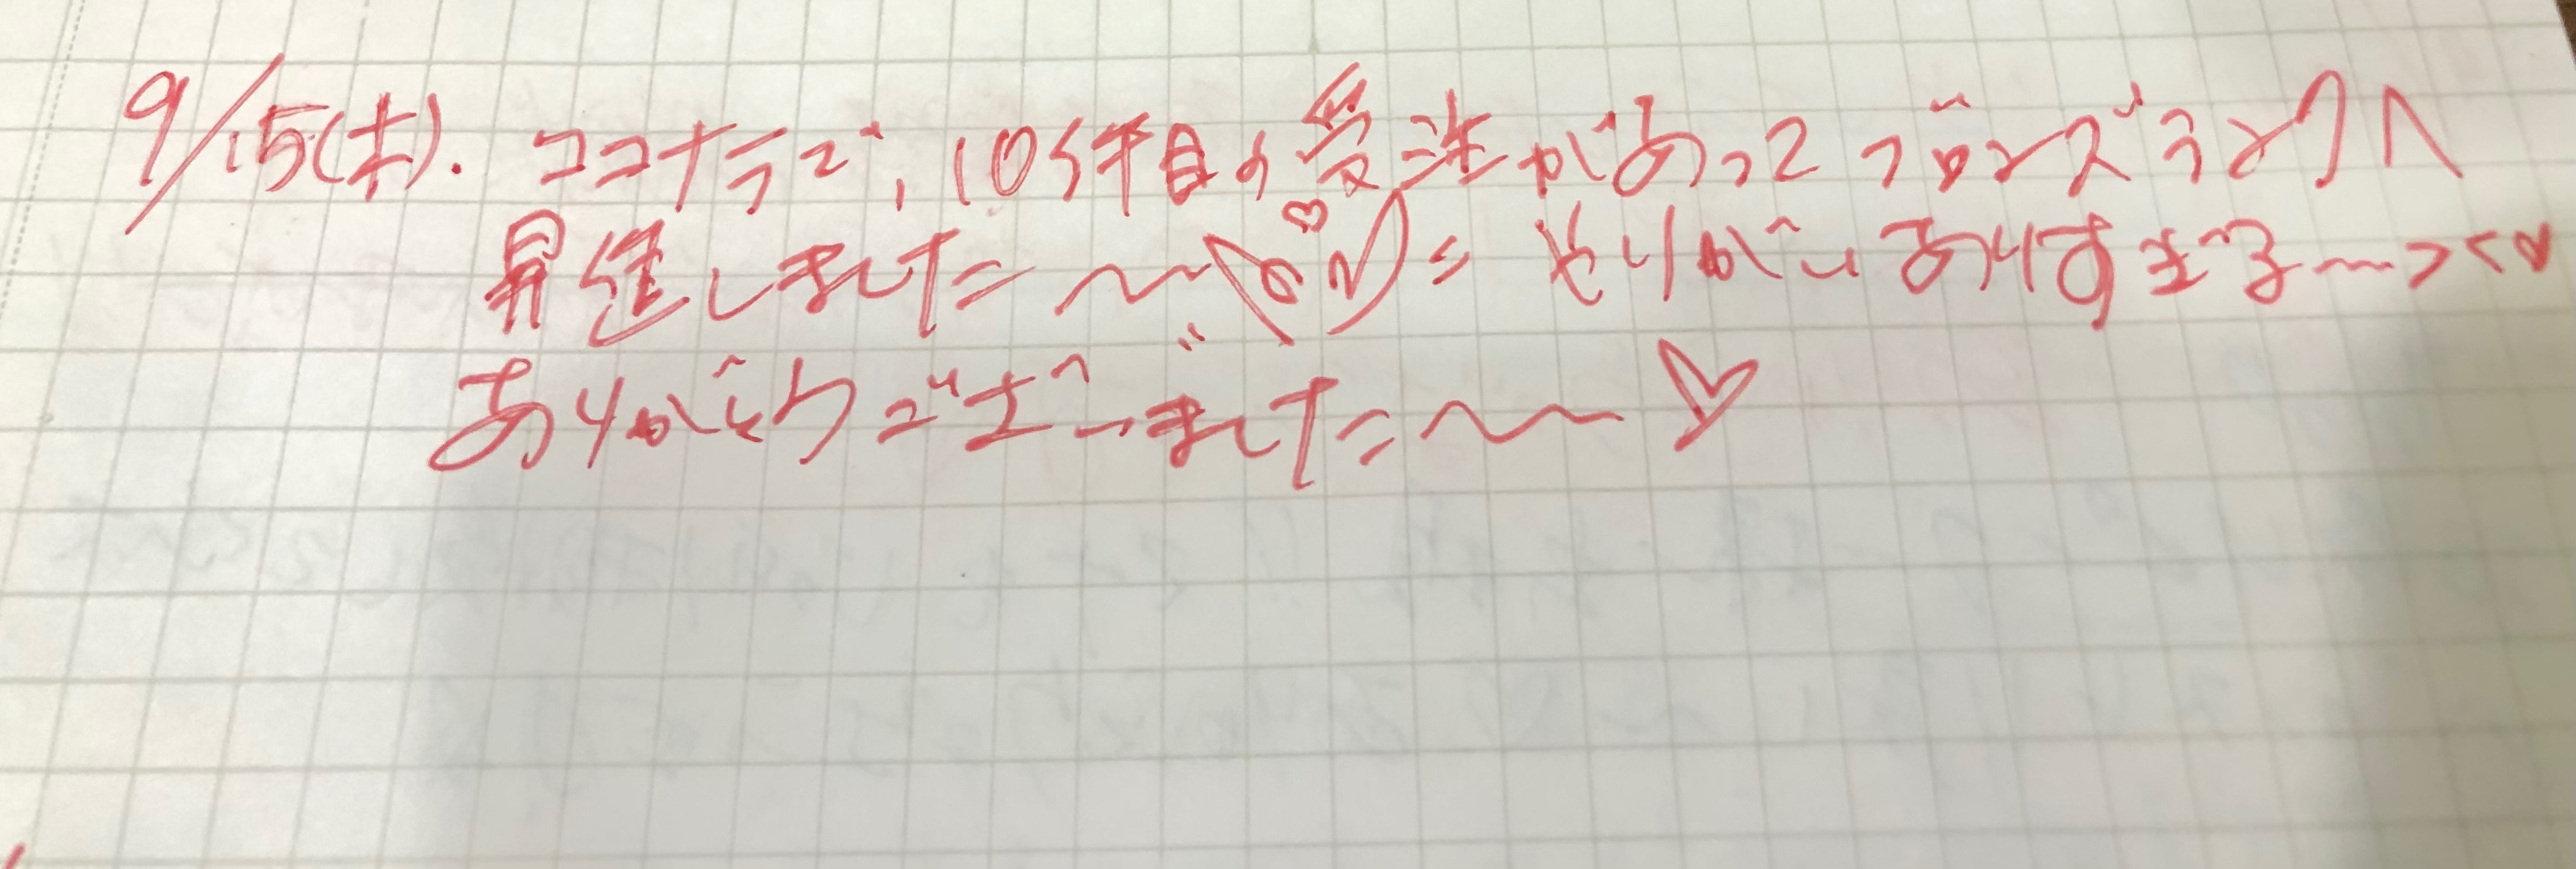 9/15(木). ココナラで、10件目の受注があってブロンズランクへ
昇進しました〜〜♡ やりがいありすぎる〜〜><♡
ありがとうございました〜〜♡